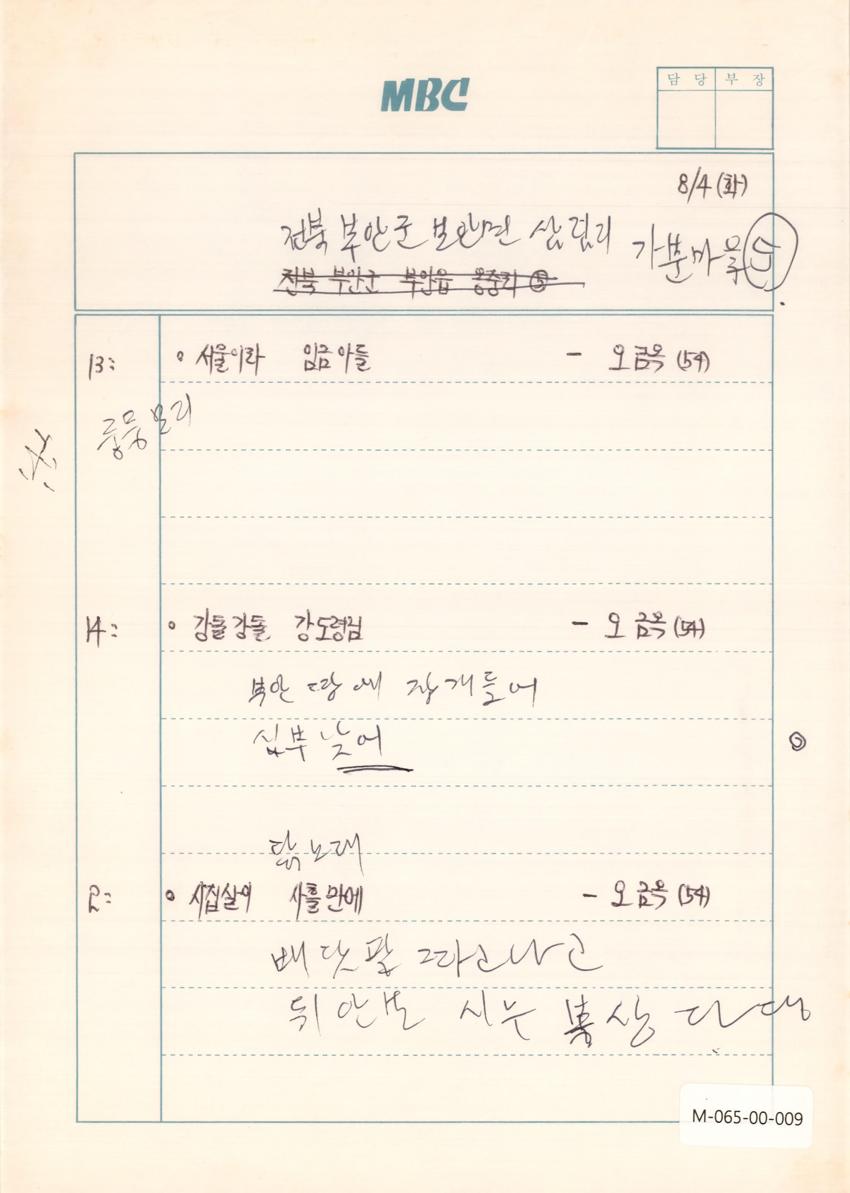 MBC
담당 부장
8/4 (화)
전북 부안군 보안면 삼림리 가분마을 ⑤
전북 부안군 부안읍 옹중리 ⑤
13: 서울이라 임금아들 - 오금옥 (54)
중몽모리
14: 강돌강돌 강도령님 - 오금옥 (54)
부안 땅에 장개들어
십부 낮에
닭노래
2: 시집살이 사흘만에 - 오금옥 (54)
배닷팔
뒤안보 시누
M-065-00-009